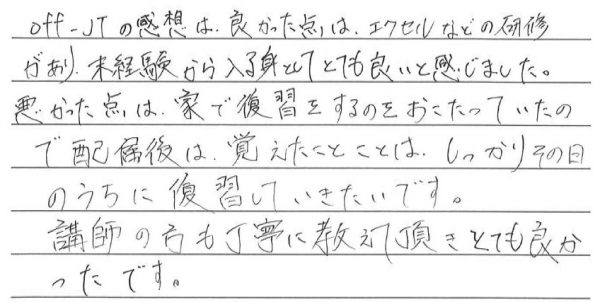 off-JTの感想は、良かった点は、エクセルなどの研修
があり、未経験から入る身としてとても良いと感じました。
悪かった点は、家で復習をするのをおこたっていたの
で配属後は、覚えたことことは、しっかりその日
のうちに復習していきたいです。
講師の方も丁寧に教えて頂きとても良か
ったです。